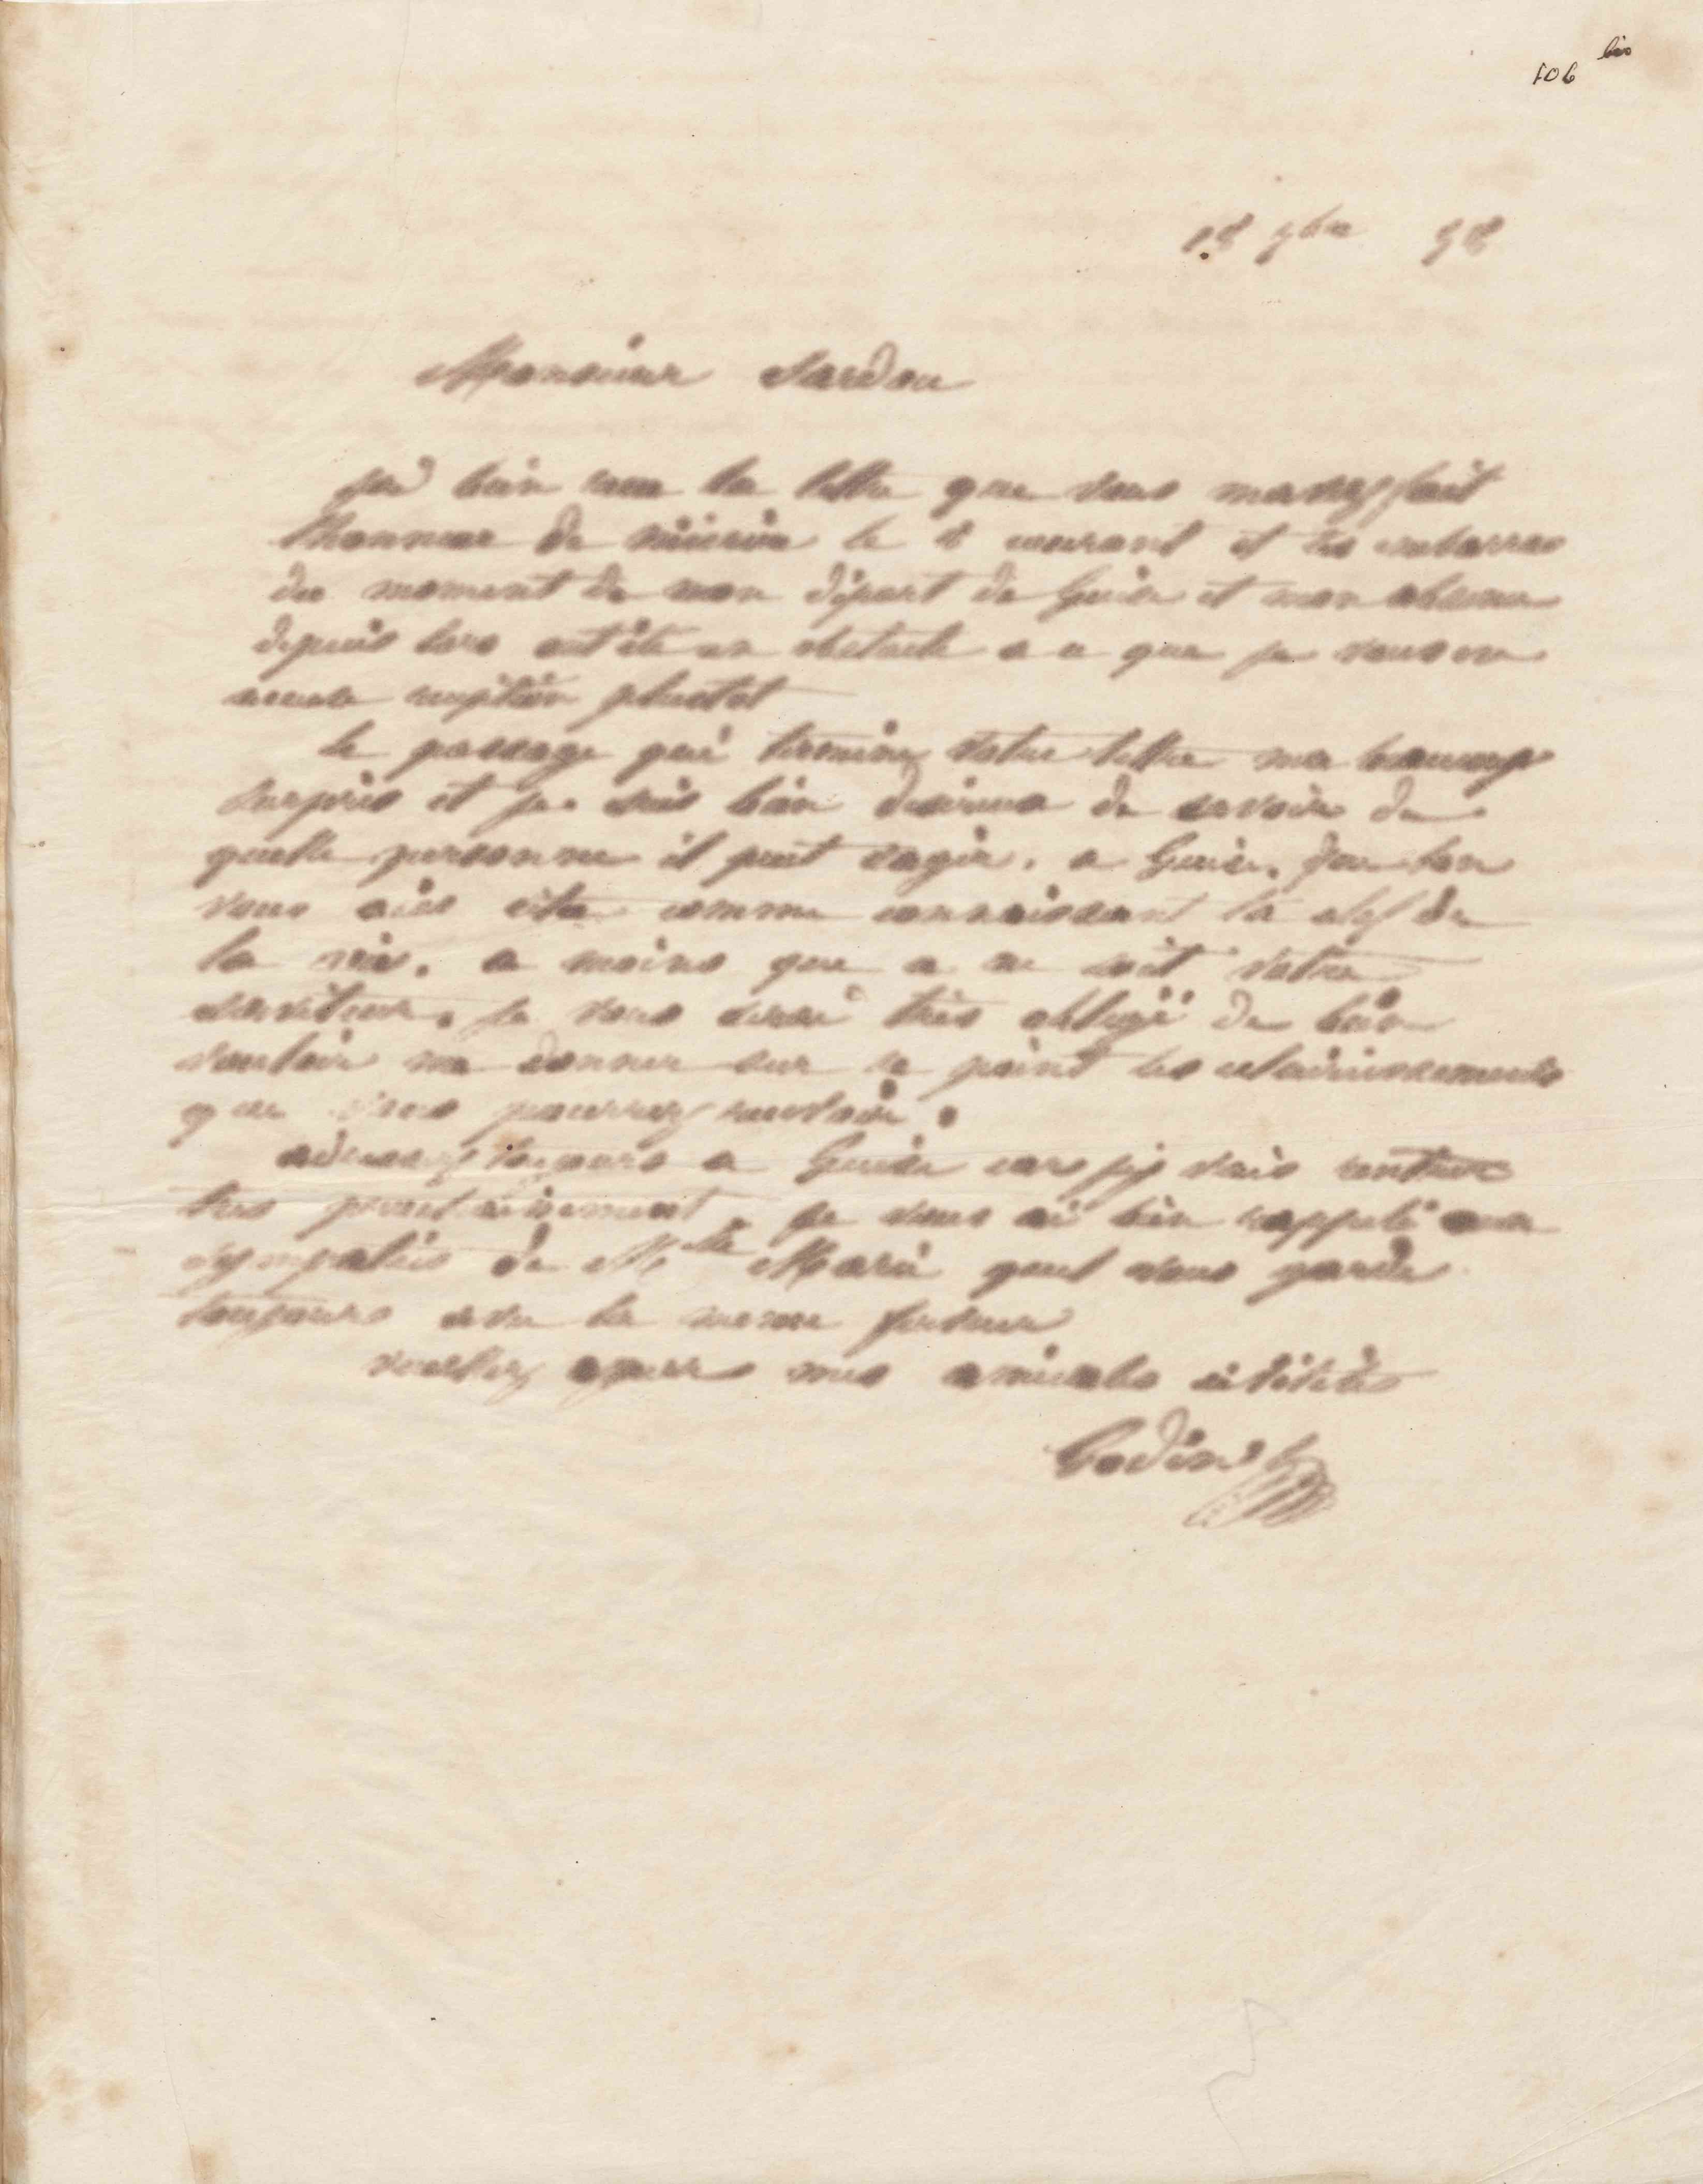 106 bis
18 9bre 58
Monsieur Sardou
jai bien recu la lettre que vous mavez fait
lhonneur de mécrire le 8 courant et les embarras
du moment de mon départ de Guise et mon absence
depuis lors ont été un obstacle a ce que je vous en
accuse reception plustot
le passage qui termine votre lettre ma beaucoup
surpris et je suis bien desireux de savoir de
quelle personne il peut sagir. a Guise, que lon
vous aies cité comme connaissant la clef de
la vie. a moins que ce ne soit votre
serviteur. je vous serai très obligé de bien
vouloir me donner sur ce point les eclaircissements
que vous pourrez
adressez toujours a Guise car jy vais rentrer
tres prochainement. je vous ai bien rappelé aux
sympaties de Mlle Marie quel vous garde
toujours avec la meme
veuillez agreer mes amicales civilités
Godin